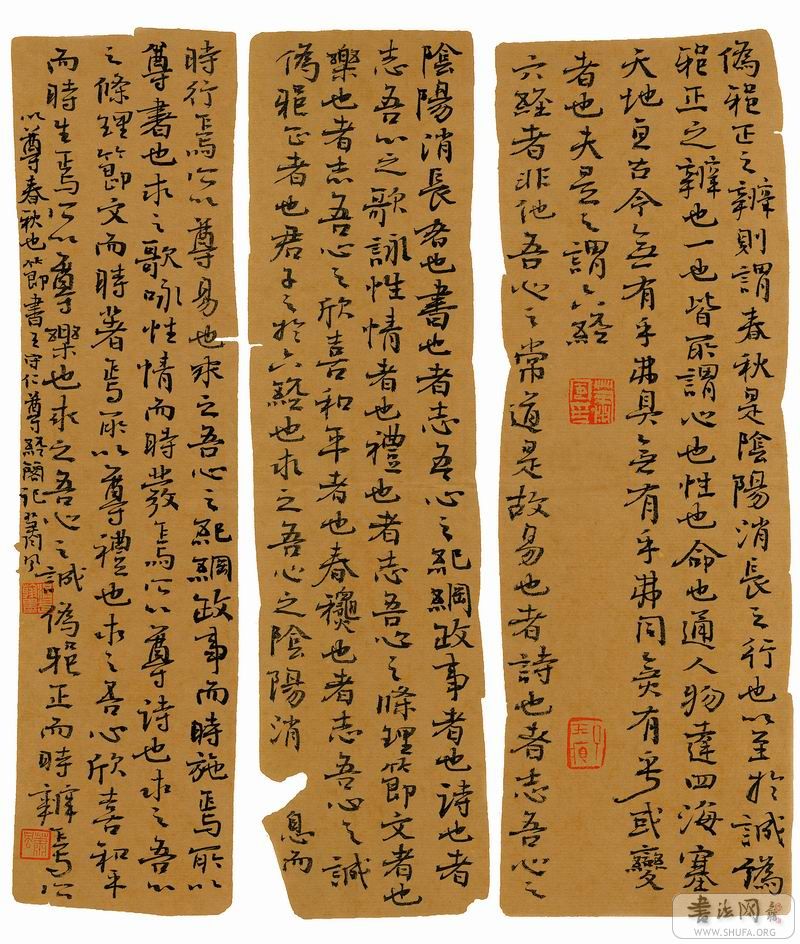 偽邪正之辯則謂春秋是陰陽消長之行也以至於誠偽
邪正之辯也一也皆所謂心也性也命也通人物達四海塞
天地亘古今無有乎弗具無有乎弗同無有乎或變
者也夫是之謂六經
六經者非他吾心之常道是故易也者志吾心之
陰陽消長者也書也者志吾心之紀綱政事者也詩也者
志吾心之歌詠性情者也禮也者志吾心之條理節文者也
樂也者志吾心之欣喜和平者也春穐也者志吾心之誠
偽邪正者也君子之於六經也求之吾心之陰陽消 息而
時行焉所以尊易也求之吾心之紀綱政事而時施焉所以
尊書也求之歌咏性情而時發焉所以尊詩也求之吾心
之條理節文而時著焉所以尊禮也求之吾心欣喜和平
而時生焉所以尊樂也求之吾心之誠偽邪正而時辯焉所
以尊春秋也節書王守仁尊經閣記
書法网
WWW.SHUFA.ORG